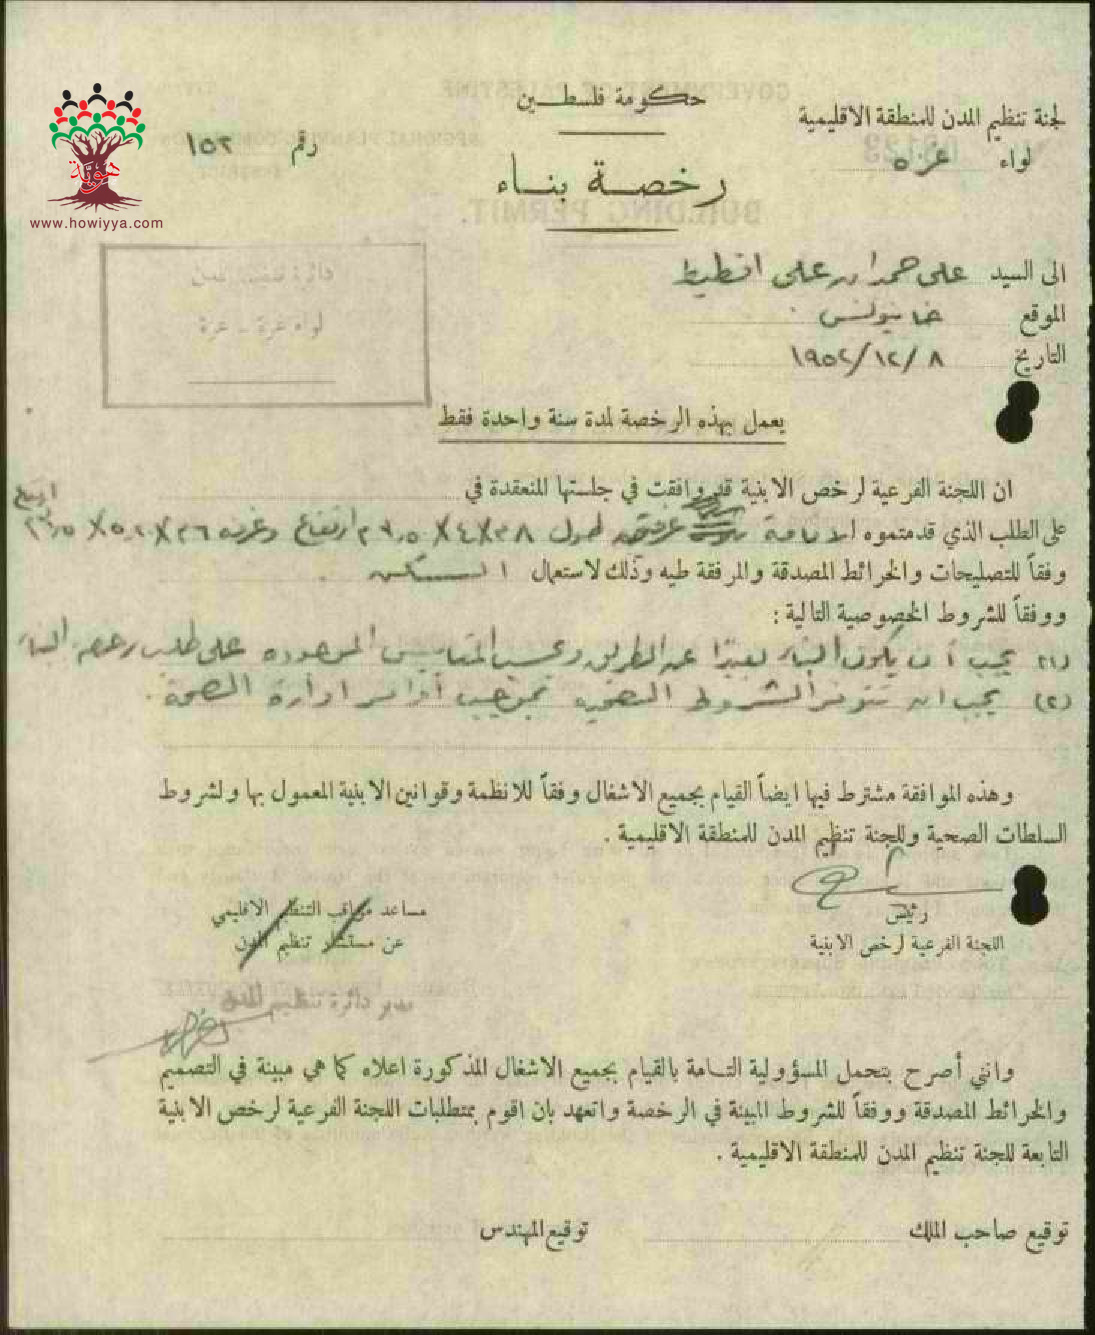 حكومة فلسطين
لجنة تنظيم المدن للمنطقة الاقليمية
لواء غزه
رقم ١٥٢
رخصة بناء
هوية
www.howiyya.com
دائرة تنظيم المدن
لواء غزة - غزة
الى السيد علي حمدان علي اقطيط
الموقع خانيونس
التاريخ ٨ /١٢/ ١٩٥٢
يعمل بهذه الرخصة لمدة سنة واحدة فقط
ان اللجنة الفرعية لرخص الابنية قد وافقت في جلستها المنعقدة في
على الطلب الذي قدمتموه لاقامة طول ارتفاع وغرفه
وفقاً للتصليحات والخرائط المصدقة والمرفقة طيه وذلك لاستعمال السكن
ووفقاً للشروط الخصوصية التالية :
(١) يجب أن يكون البناء بعيدا عن الطريق وحسب المقاييس الموجوده على طلب رخصة البناء
(٢) يجب ان تتوفر الشروط الصحيه بموجب أوامر ادارة الصحة .
وهذه الموافقة مشترط فيها ايضاً القيام بجميع الاشغال وفقاً للانظمة وقوانين الابنية المعمول بها ولشروط
السلطات الصحية وللجنة تنظيم المدن للمنطقة الاقليمية .
رئيس
اللجنة الفرعية لرخص الابنية
مساعد مراقب التنظيم الاقليمي
عن مستشار تنظيم المدن
مدير دائرة تنظيم المدن
وانني أصرح بتحمل المسؤولية التامة بالقيام بجميع الاشغال المذكورة اعلاه كما هي مبينة في التصميم
والخرائط المصدقة ووفقاً للشروط المبينة في الرخصة واتعهد بان اقوم بمتطلبات اللجنة الفرعية لرخص الابنية
التابعة للجنة تنظيم المدن للمنطقة الاقليمية .
توقيع صاحب الملك
توقيع المهندس